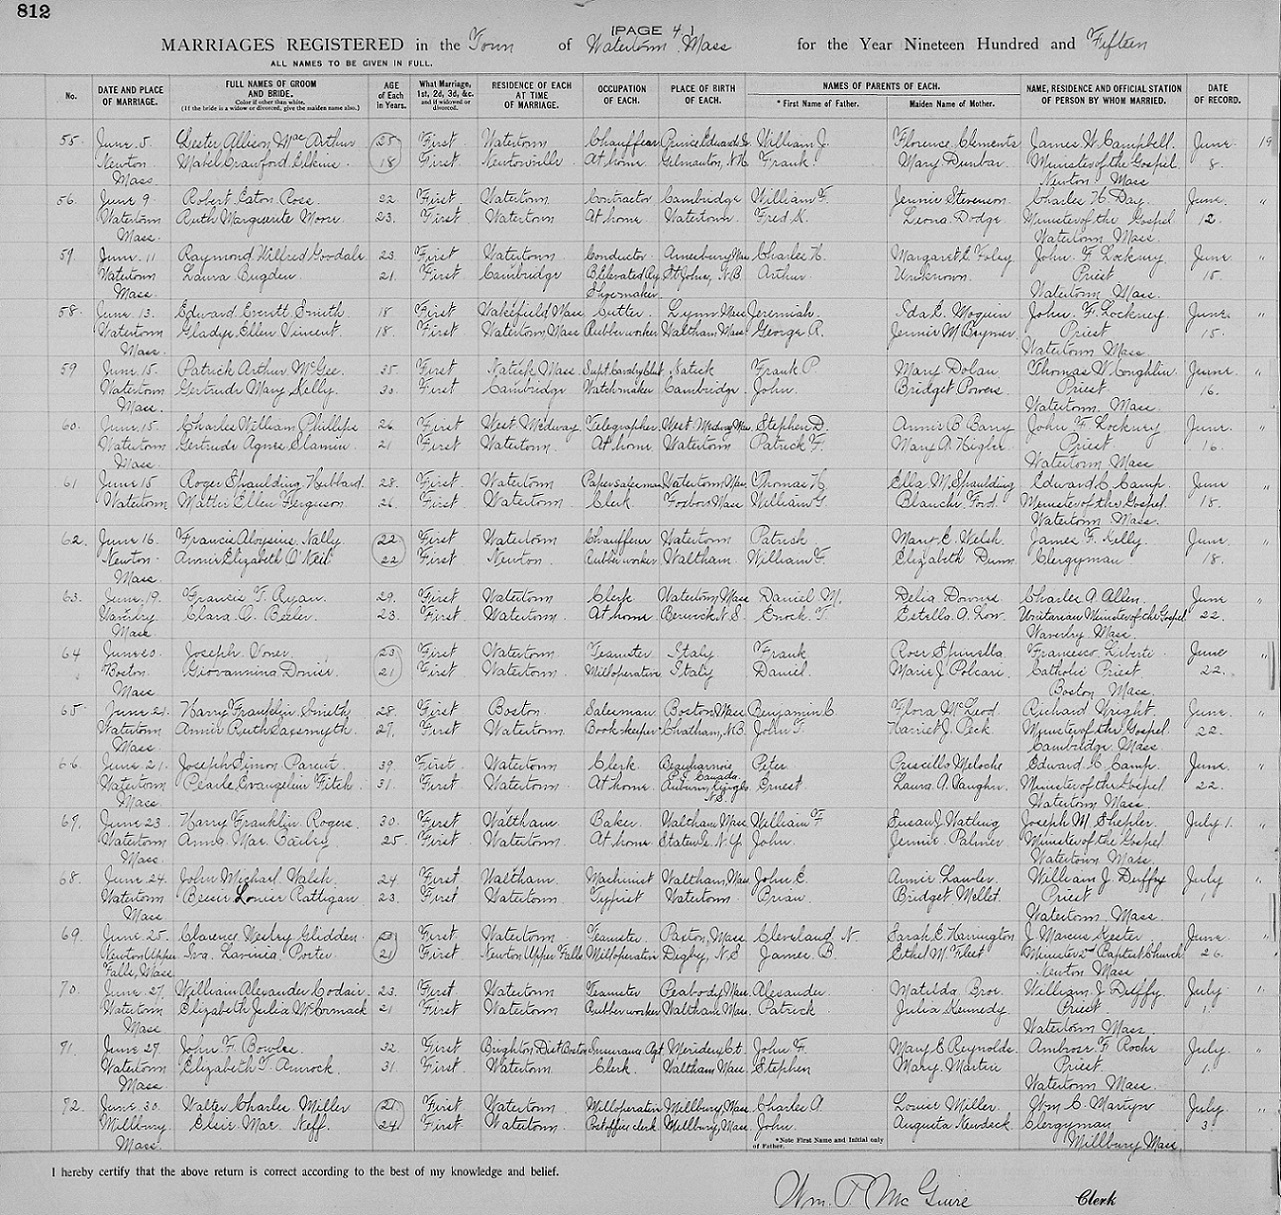 812
[PAGE 4.]
MARRIAGES REGISTERED in the Town of Watertown Mass for the Year Nineteen Hundred and Fifteen
ALL NAMES TO BE GIVEN IN FULL.
No. DATE AND PLACE OF MARRIAGE. FULL NAMES OF GROOM AND BRIDE. Color if other than white. (If the bride is a widow or divorced, give the maiden name also.) AGE of Each in Years. What Marriage, 1st, 2d, 3d, &c. and if widowed or divorced. RESIDENCE OF EACH AT TIME OF MARRIAGE. OCCUPATION OF EACH. PLACE OF BIRTH OF EACH. NAMES OF PARENTS OF EACH. * First Name of Father. Maiden Name of Mother. NAME, RESIDENCE AND OFFICIAL STATION OF PERSON BY WHOM MARRIED. DATE OF RECORD.
55 June 5 Lester Allison MacArthur 25 First Watertown Chauffeur Prince Edwards I. William J. Florence Clements James H. Campbell June 19
Newton Mabel Crawford 18 First Newtonville At home Gilmanton, N.H. Frank Mary Dunbar Minister of the Gospel 8.
Mass. Newton Mass
56. June 9. Robert Eaton Ross 22 First Watertown Contractor Cambridge William F. Jennie Stevenson Charles H. Day June "
Watertown Ruth Marguerite Moore 23. First Watertown At home Watertown Fred K. Leona Dodge Minister of the Gospel 12.
Mass. Watertown Mass.
57. June 11 Raymond Wilfred Goodale 23 First Watertown Conductor Amesbury Mass Charles H. Margaret E. Foley John F. Lockney June "
Watertown Laura Bugden 21. First Cambridge B. Elevated Ry. St John, N.B. Arthur Unknown Priest 15.
Mass. Watertown Mass.
58. June 13. Edward Everett Smith 18 First Wakefield Mass Cutler Lynn Mass Jeremiah Ada E. Moquin John F. Lockney June "
Watertown Gladys Ellen Vincent 18. First Watertown, Mass Rubber worker Waltham Mass George R. Jennie M Brymer Priest 15.
Mass. Watertown Mass
59 June 15. Patrick Arthur McGee. 35. First Natick Mass Natick Frank P. Mary Dolan Thomas W. Coghlin June "
Watertown Gertrude Mary Kelly. 30. First Cambridge Watchmaker Cambridge John. Bridget Powers Priest 16.
Mass. Watertown, Mass.
60. June 15. Charles William Phillips 26 First West Medway Telegrapher West Medway Mass. Stephen D. Annie B. Barry John F. Lockney June "
Watertown Gertrude Agnes Slamin 21 First Watertown. At home Watertown Patrick F. Mary A. Priest 16.
Mass. Watertown Mass
61 June 15 Roger Spaulding Hibbard. 28. First Watertown Paper salesman Watertown Mass Thomas H. Ella M. Spaulding Edward C. Camp June "
Watertown Mattie Ellen Ferguson 26. First Watertown Clerk Foxboro Mass William G. Blanche Ford Minister of the Gospel 18.
Watertown Mass.
62. June 16. Francis Aloysius Nally. 22 First Watertown Chauffeur Watertown Patrick Mary E. Welsh James F. Kelly June "
Newton Annie Elizabeth O'Neil 22 First Newton Rubber worker Waltham William F. Elizabeth Dunn Clergyman 18.
Mass.
63. June 19. Francis T. Ryan. 29. First Watertown Clerk Watertown Mass Daniel M. Delia Downs Charles A. Allen. June "
Waverley Clara O. 23. First Watertown At home Berwick N.S Enock T. Estella A. Low Unitarian Minister of the Gospel 22.
Mass. Waverley Mass.
64 June 20. Joseph 23 First Watertown Teamster Italy Frank Rose Spinella Francesco Liberti June "
Boston Giovannina 21 First Watertown Mill operative Italy Daniel Marie J Polcari Catholic Priest 22.
Mass. Boston Mass.
65. June 21. Harry Franklin Smith 28. First Boston Salesman Boston Mass Benjamin C Flora McLeod Richard Wright June "
Watertown Annie Ruth 27. First Watertown Book keeper Chatham, N.B. John T. Harriet J. Peck Minister of the Gospel 22.
Mass. Cambridge Mass
66. June 21. Joseph Simon Parent. 39. First Watertown Clerk Beauharnois P.Q. Canada Peter Priscille Meloche Edward C. Camp. June "
Watertown Pearle Evangeline Fitch 31. First Watertown At home Auburn, Kings Co. N.S. Ernest Laura A. Vaughn Minister of the Gospel 22.
Mass. Watertown Mass.
67. June 23. Harry Franklin Rogers. 30. First Waltham Baker Waltham Mass William F Susan J Joseph M. Shepler July 1. "
Watertown Anna Mae 25 First Watertown. At home Staten Is. N.Y. John. Jennie Palmer Minister of the Gospel
Mass. Watertown Mass.
68. June 24. John Michael Walsh. 24 First Waltham. Machinist Waltham, Mass John E. Annie Lawler William J. Duffy July "
Watertown Bessie Louise Rattigan 23. First Watertown. Typist Watertown Brian Bridget Mellet. Priest 1
Mass Watertown Mass.
69. June 25. Clarence Wesley Glidden. First Watertown Teamster Paxton, Mass Cleveland N. Sarah E. Harrington J. Marcus Kester June "
Newton Upper Iva Lavinia Porter 21 First Newton Upper Falls Mill operative Digby, N.S James B. Ethel McFleet Minister 2nd Baptist Church 26.
Falls, Mass Newton Mass
70. June 27. William Alexander 23. First Watertown Teamster Peabody Mass. Alexander. Matilda William J Duffy July "
Watertown Elizabeth Julia McCormack 21 First Watertown Rubber worker Waltham Mass. Patrick Julia Kennedy Priest 1.
Mass Watertown Mass.
71. June 27. John F. Bowles 32. First Brighton Dist Boston Insurance Agt Meriden, Ct. John F. Mary E Reynolds Ambrose F Roche July "
Watertown Elizabeth T. 31. First Watertown Clerk Waltham Mass. Stephen Mary Martin Priest 1.
Mass. Watertown Mass.
72. June 30. Walter Charles Miller 21 First Watertown Mill operative Millbury, Mass. Charles A. Louise Miller Wm C. Martyn July. "
Millbury Elsie Mae Neff. 24 First Watertown. Post office clerk Millbury, Mass. John. Augusta Newdeck Clergyman 3
Mass. Millbury Mass
*Note First Name and Initial only of Father.
I hereby certify that the above return is correct according to the best of my knowledge and belief.
Wm. T McGuire Clerk